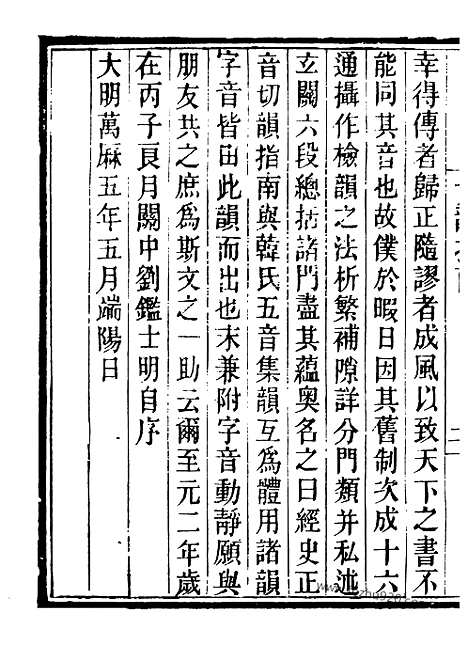 幸得傳者歸正隨謬者成風以致天下之書不
能同其音也故僕於暇日因其舊制次成十六
通攝作檢韻之法析繁補隙詳分門類并私述
玄關六段總括諸門盡其蘊奧名之曰經史正
音切韻指南與韓氏五音集韻互爲體用諸韻
字音皆由此韻而出也末兼附字音動靜願與
朋友共之庶爲斯文之一助云爾至元二年歲
在丙子良月關中劉鑑士明自序
大明萬麻五年五月端陽日